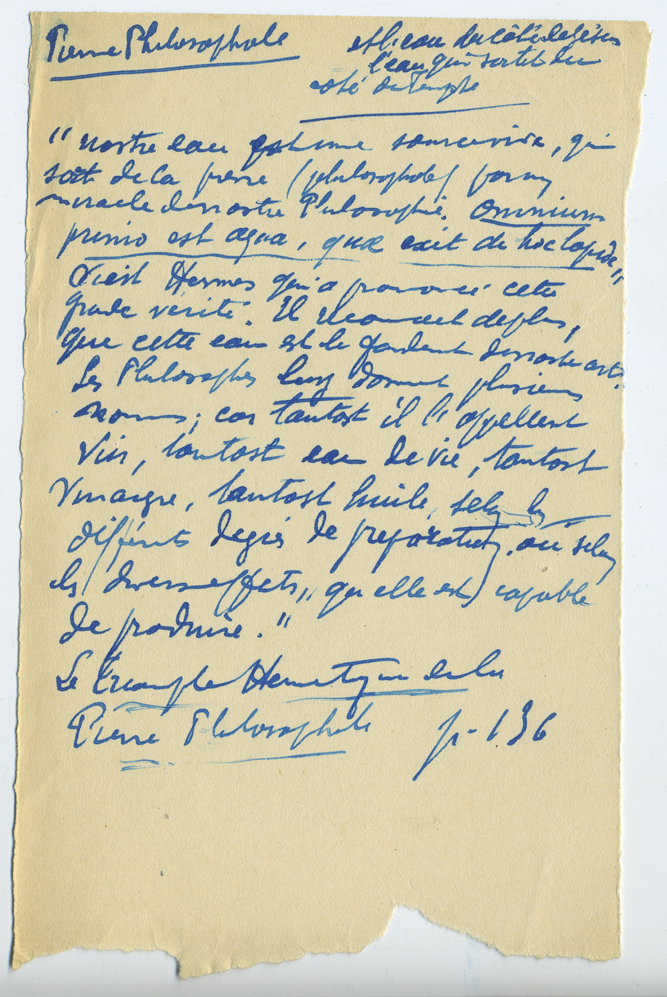 Pierre Philosophale
et l'eau du côté de Jésus
l'eau qui sortit du
côté du Temple
"nostre eau est une source vive, qui
sort de la pierre (philosophale) par un
miracle de nostre Philosophie. Omnium
primo est aqua, quæ exit de hoc lapide"
c'est Hermes qui a prononcé cette
grande vérité. Il reconnaet de plus,
que cette eau est le fondement de nostre art.
Les Philosophes luy donnent plusieurs
noms; car tantost il l'appellent
Vin, tantost eau de vie, tantost
Vinaigre, tantost huile, selon les
différents degrés de préparation, ou selon
les divers effets, qu'elle est capable
de produire."
Le Triomphe Hermetique de la
Pierre Philosophale p. 136